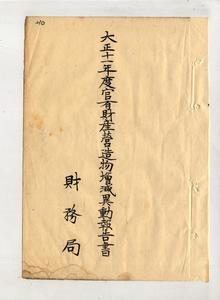 大正十一年度官有財産營造物增減異動報告書
財務局